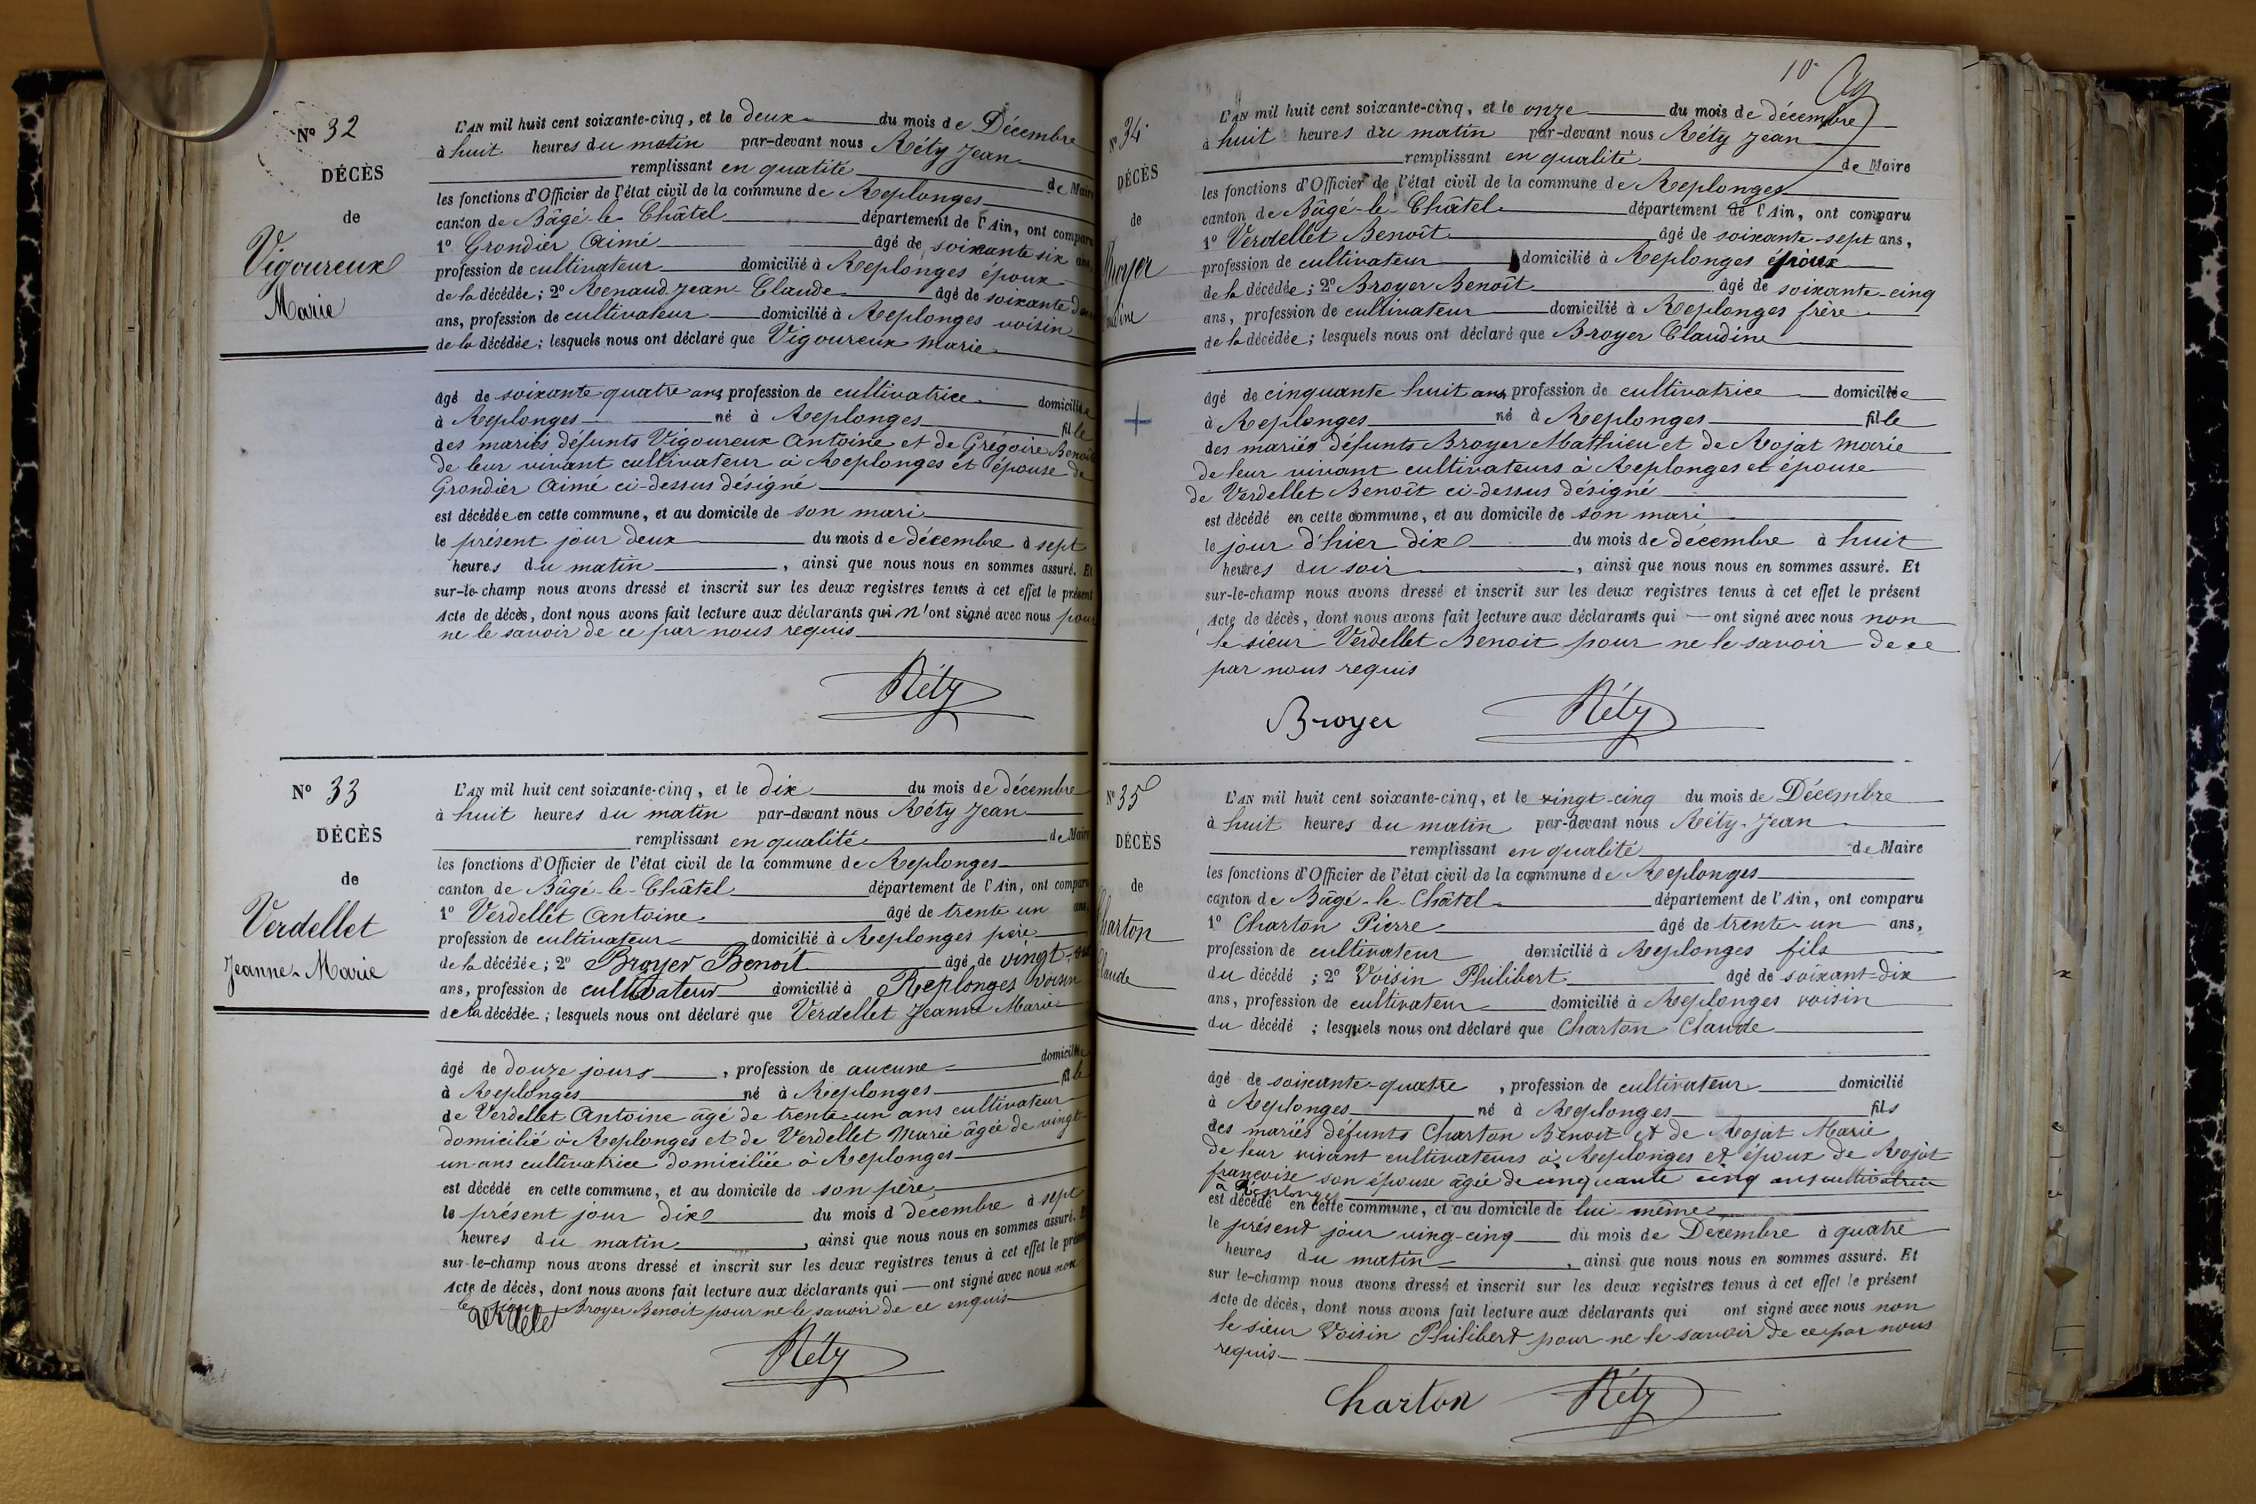 N° 32
DÉCÈS
de
Vigoureux
Marie
L'AN mil huit cent soixante-cinq, et le deux du mois de Décembre
à huit heures du matin par-devant nous Réty Jean
remplissant en qualité de Maire
les fonctions d'Officier de l'état civil de la commune de Replonges
canton de Bâgé-le-Châtel département de l'Ain, ont comparu
1° Grondier Aimé âgé de soixante six ans,
profession de cultivateur domicilié à Replonges époux
de la décédée; 2° Renaud Jean Claude âgé de soixante
ans, profession de cultivateur domicilié à Replonges voisin
de la décédée; lesquels nous ont déclaré que Vigoureux Marie
âgé de soixante quatre ans profession de cultivatrice domiciliée
à Replonges né à Replonges fille
des mariés défunts Vigoureux Antoine et de Grégoire Benoîte
de leur vivant cultivateur à Replonges et épouse de
Grondier Aimé ci-dessus désigné
est décédée en cette commune, et au domicile de son mari
le présent jour deux du mois de décembre à sept
heures du matin, ainsi que nous nous en sommes assuré. Et
sur-le-champ nous avons dressé et inscrit sur les deux registres tenus à cet effet le présent
Acte de décès, dont nous avons fait lecture aux déclarants qui n'ont signé avec nous pour
ne le savoir de ce par nous requis
Réty
N° 33
DÉCÈS
de
Verdellet
Jeanne-Marie
L'AN mil huit cent soixante-cinq, et le dix du mois de décembre
à huit heures du matin par-devant nous Réty Jean
remplissant en qualité de Maire
les fonctions d'Officier de l'état civil de la commune de Replonges
canton de Bâgé-le-Châtel département de l'Ain, ont comparu
1° Verdellet Antoine âgé de trente un ans,
profession de cultivateur domicilié à Replonges père
de la décédée; 2° Broyer Benoit âgé de vingt
ans, profession de cultivateur domicilié à Replonges voisin
de la décédée; lesquels nous ont déclaré que Verdellet Jeanne Marie
âgé de douze jours, profession de aucune domiciliée
à Replonges né à Replonges fille
de Verdellet Antoine âgé de trente un ans cultivateur
domicilié à Replonges et de Verdellet Marie âgée de vingt
un ans cultivatrice domiciliée à Replonges
est décédé en cette commune, et au domicile de son père
le présent jour dix du mois d decembre à sept
heures du matin, ainsi que nous nous en sommes assuré. Et
sur-le-champ nous avons dressé et inscrit sur les deux registres tenus à cet effet le présent
Acte de décès, dont nous avons fait lecture aux déclarants qui — ont signé avec nous non
le sieur Broyer Benoit pour ne le savoir de ce enquis
Verdelet
Réty
10
N° 34
DÉCÈS
de
Broyer
L'AN mil huit cent soixante-cinq, et le onze du mois de décembre
à huit heures du matin par-devant nous Réty Jean
remplissant en qualité de Maire
les fonctions d'Officier de l'état civil de la commune de Replonges
canton de Bâgé-le-Châtel département de l'Ain, ont comparu
1° Verdellet Benoît âgé de soixante-sept ans,
profession de cultivateur domicilié à Replonges époux
de la décédée; 2° Broyer Benoît âgé de soixante-cinq
ans, profession de cultivateur domicilié à Replonges frère
de la décédée; lesquels nous ont déclaré que Broyer Claudine
âgé de cinquante huit ans profession de cultivatrice domiciliée
à Replonges né à Replonges fille
des mariés défunts Broyer Mathieu et de Rojat Marie
de leur vivant cultivateurs à Replonges et épouse
de Verdellet Benoît ci-dessus désigné
est décédé en cette commune, et au domicile de son mari
le jour d'hier dix du mois de decembre à huit
heures du soir, ainsi que nous nous en sommes assuré. Et
sur-le-champ nous avons dressé et inscrit sur les deux registres tenus à cet effet le présent
Acte de décès, dont nous avons fait lecture aux déclarants qui — ont signé avec nous non
le sieur Verdellet Benoit pour ne le savoir de ce
par nous requis
Broyer Réty
N° 35
DÉCÈS
de
Charton
Claude
L'AN mil huit cent soixante-cinq, et le vingt-cinq du mois de Décembre
à huit heures du matin par-devant nous Réty-Jean
remplissant en qualité de Maire
les fonctions d'Officier de l'état civil de la commune de Replonges
canton de Bâgé-le-Châtel département de l'Ain, ont comparu
1° Charton Pierre âgé de trente-un ans,
profession de cultivateur domicilié à Replonges fils
du décédé; 2° Voisin Philibert âgé de soixant-dix
ans, profession de cultivateur domicilié à Replonges voisin
du décédé; lesquels nous ont déclaré que Charton Claude
âgé de soixante-quatre, profession de cultivateur domicilié
à Replonges né à Replonges fils
des mariés défunts Charton Benoit et de Rojat Marie
de leur vivant cultivateurs à Replonges et époux de Rojat
françoise son épouse âgée de cinquante cinq ans cultivatrice
à Replonges
est décédé en cette commune, et au domicile de lui-même
le présent jour ving-cinq du mois de Décembre à quatre
heures du matin, ainsi que nous nous en sommes assuré. Et
sur le-champ nous avons dressé et inscrit sur les deux registres tenus à cet effet le présent
Acte de décès, dont nous avons fait lecture aux déclarants qui ont signé avec nous non
le sieur Voisin Philibert pour ne le savoir de ce par nous
requis
Charton Réty